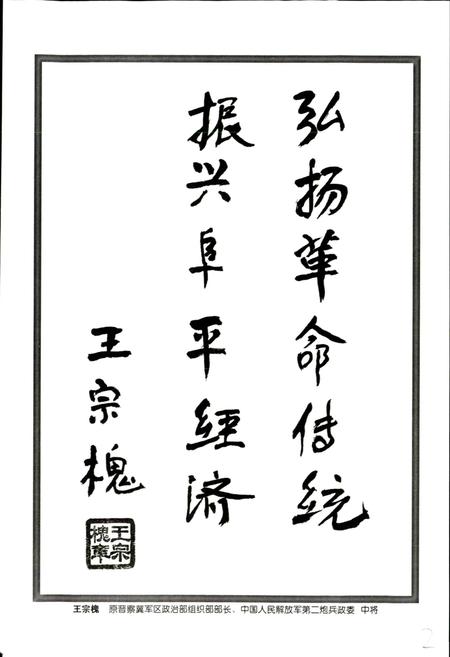 弘扬革命传统
振兴阜平經济
王宗槐
王宗槐章
王宗槐 原晋察冀军区政治部组织部部长、中国人民解放军第二炮兵政委 中将
2